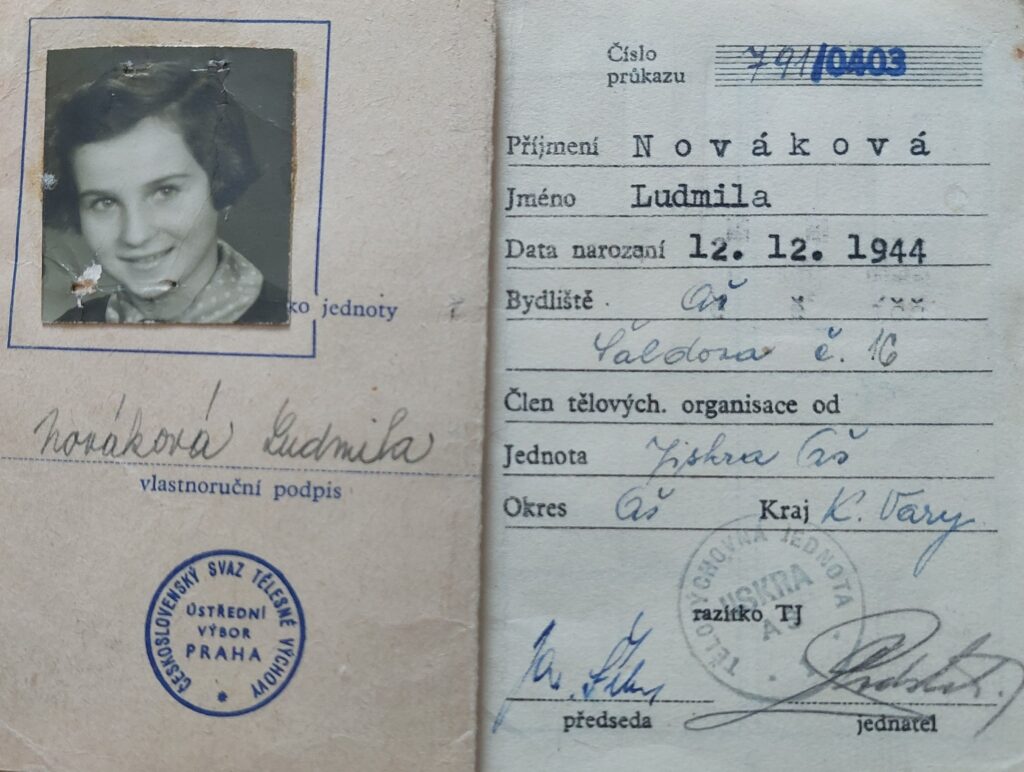 ko jednoty
Nováková Ludmila
vlastnoruční podpis
ČESKOSLOVENSKÝ SVAZ TĚLESNÉ VÝCHOVY
ÚSTŘEDNÍ
VÝBOR
PRAHA
Číslo
průkazu 791/0403
Příjmení Nováková
Jméno Ludmila
Data narození 12. 12. 1944
Bydliště Aš
Šaldova č. 16
Člen tělových. organisace od
Jednota Jiskra Aš
Okres Aš Kraj K. Vary
TĚLOVÝCHOVNÁ JEDNOTA
JISKRA
AŠ
razítko TJ
předseda jednatel